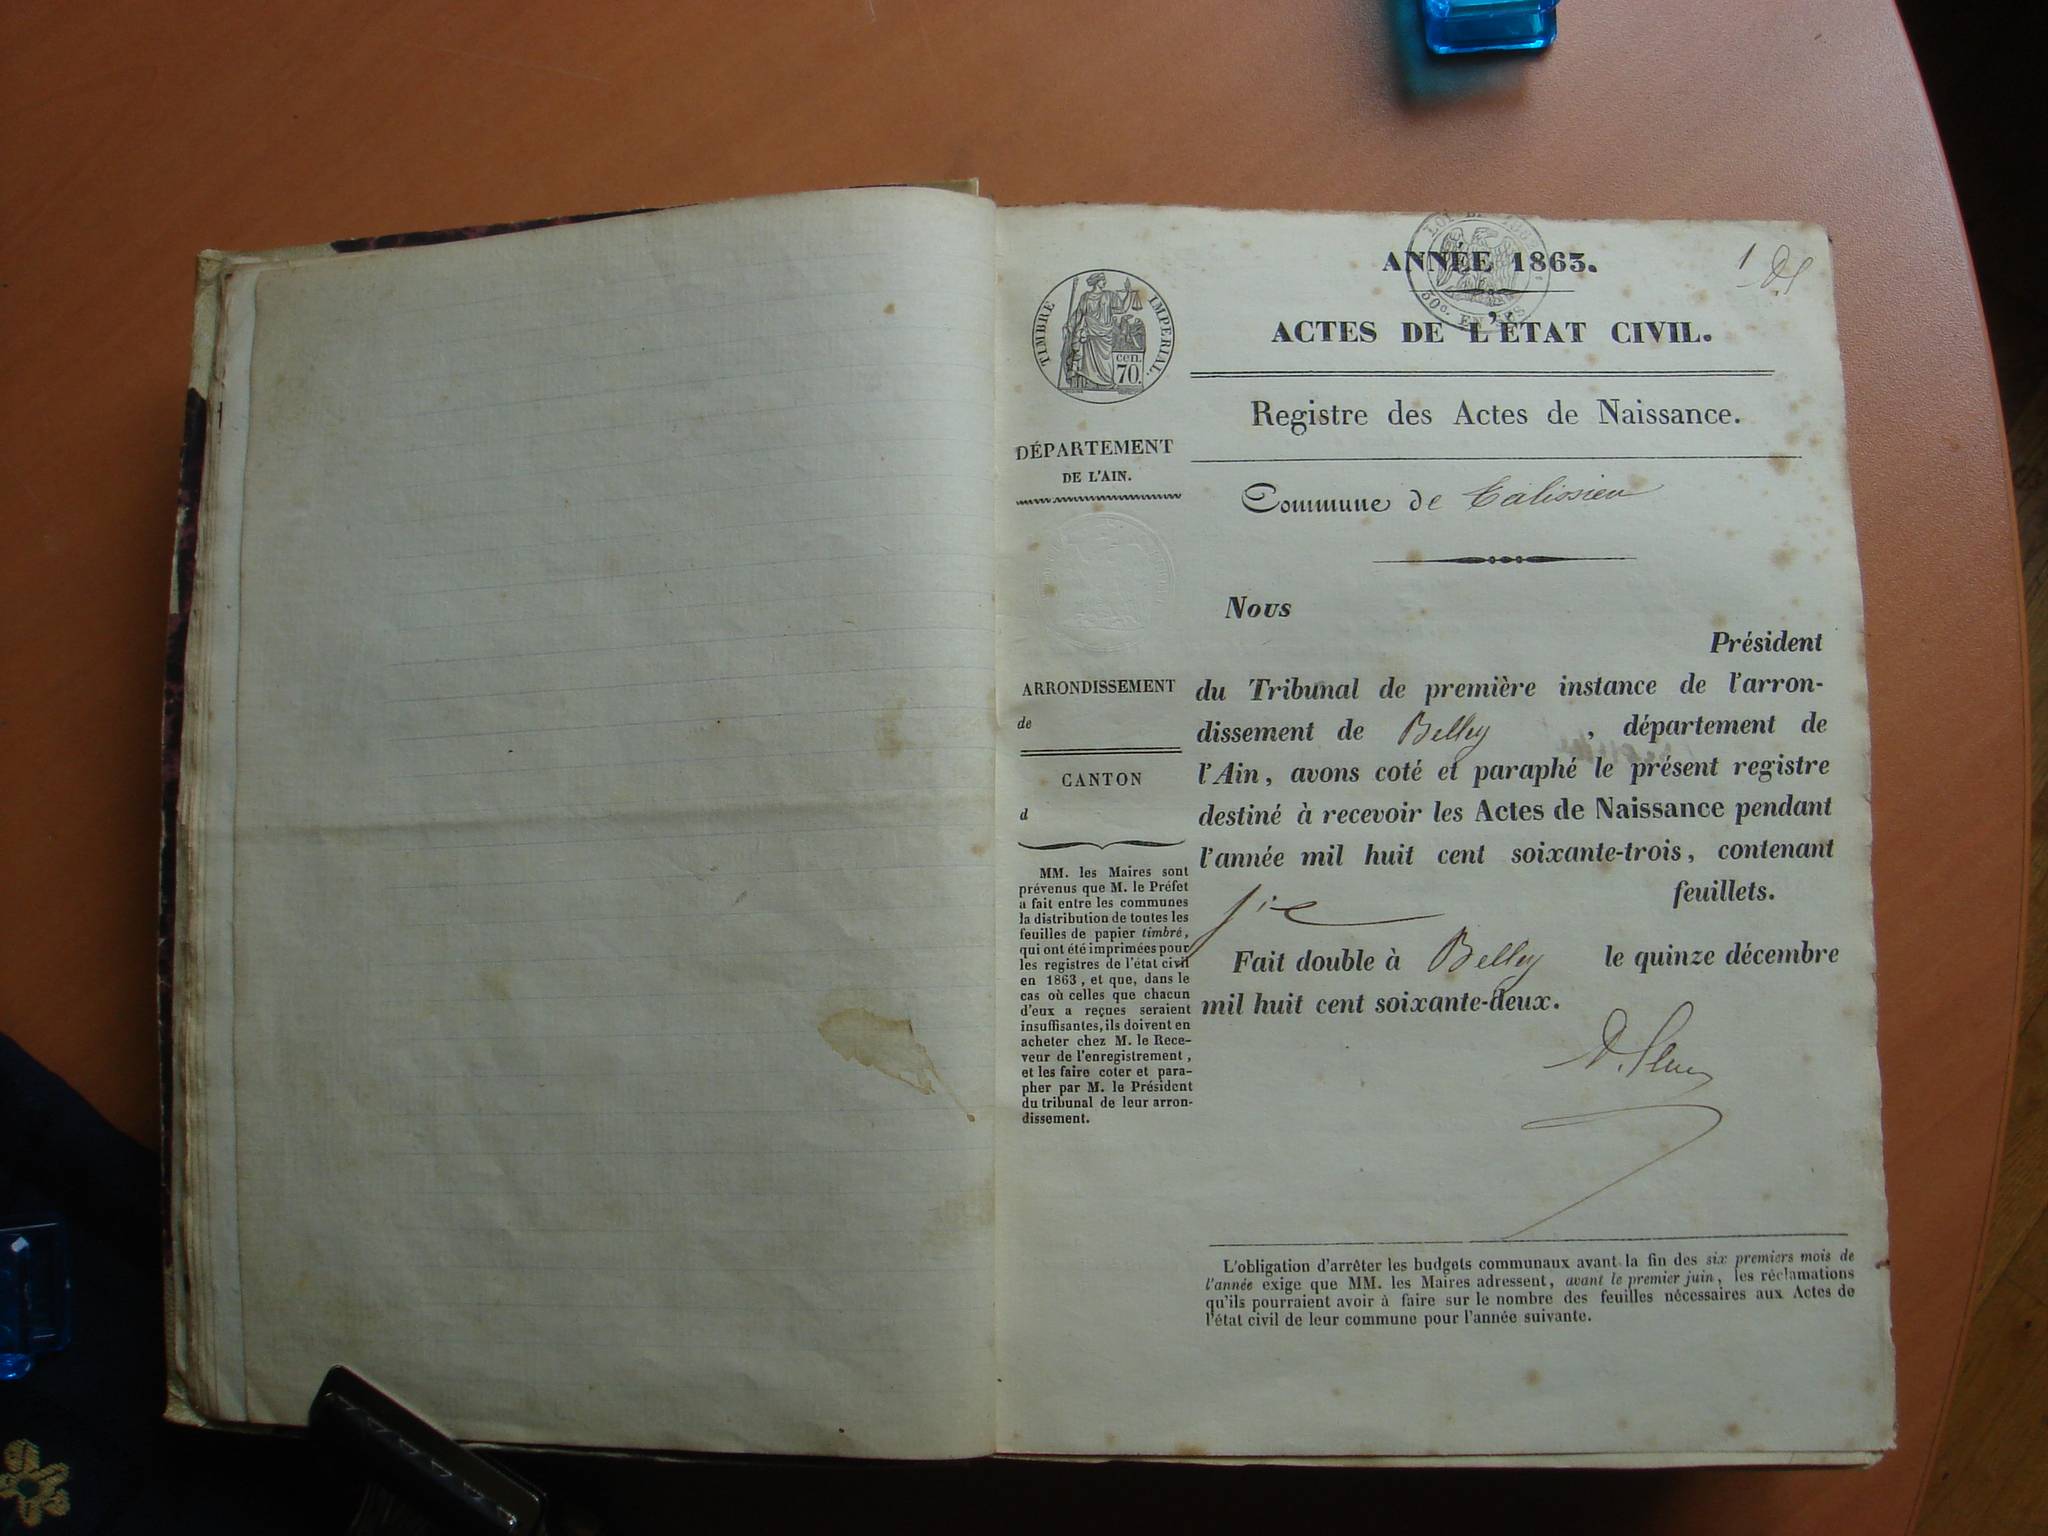 LOI DE 1862
50c. EN SUS
ANNÉE 1863.
1
TIMBRE IMPERIAL.
cen.
70.
ACTES DE L'ÉTAT CIVIL.
Registre des Actes de Naissance.
DÉPARTEMENT
DE L'AIN.
Commune de Talissieu
ARRONDISSEMENT
de
CANTON
d
MM. les Maires sont
prévenus que M. le Préfet
a fait entre les communes
la distribution de toutes les
feuilles de papier timbré,
qui ont été imprimées pour
les registres de l'état civil
en 1863, et que, dans le
cas où celles que chacun
d'eux a reçues seraient
insuffisantes, ils doivent en
acheter chez M. le Rece-
veur de l'enregistrement,
et les faire coter et para-
pher par M. le Président
du tribunal de leur arron-
dissement.
Nous
Président
du Tribunal de première instance de l'arron-
dissement de Belley , département de
l'Ain, avons coté et paraphé le présent registre
destiné à recevoir les Actes de Naissance pendant
l'année mil huit cent soixante-trois, contenant
feuillets.
Fait double à Belley le quinze décembre
mil huit cent soixante-deux.
L'obligation d'arrêter les budgets communaux avant la fin des six premiers mois de
l'année exige que MM. les Maires adressent, avant le premier juin, les réclamations
qu'ils pourraient avoir à faire sur le nombre des feuilles nécessaires aux Actes de
l'état civil de leur commune pour l'année suivante.